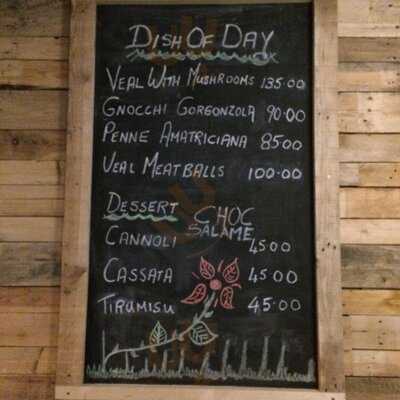 Dish Of Day
Veal With Mushrooms 135.00
Gnocchi Gorgonzola 90.00
Penne Amatriciana 85.00
Veal Meatballs 100.00
Dessert
Choc Salame
Cannoli 45.00
Cassata 45.00
Tirumisu 45.00